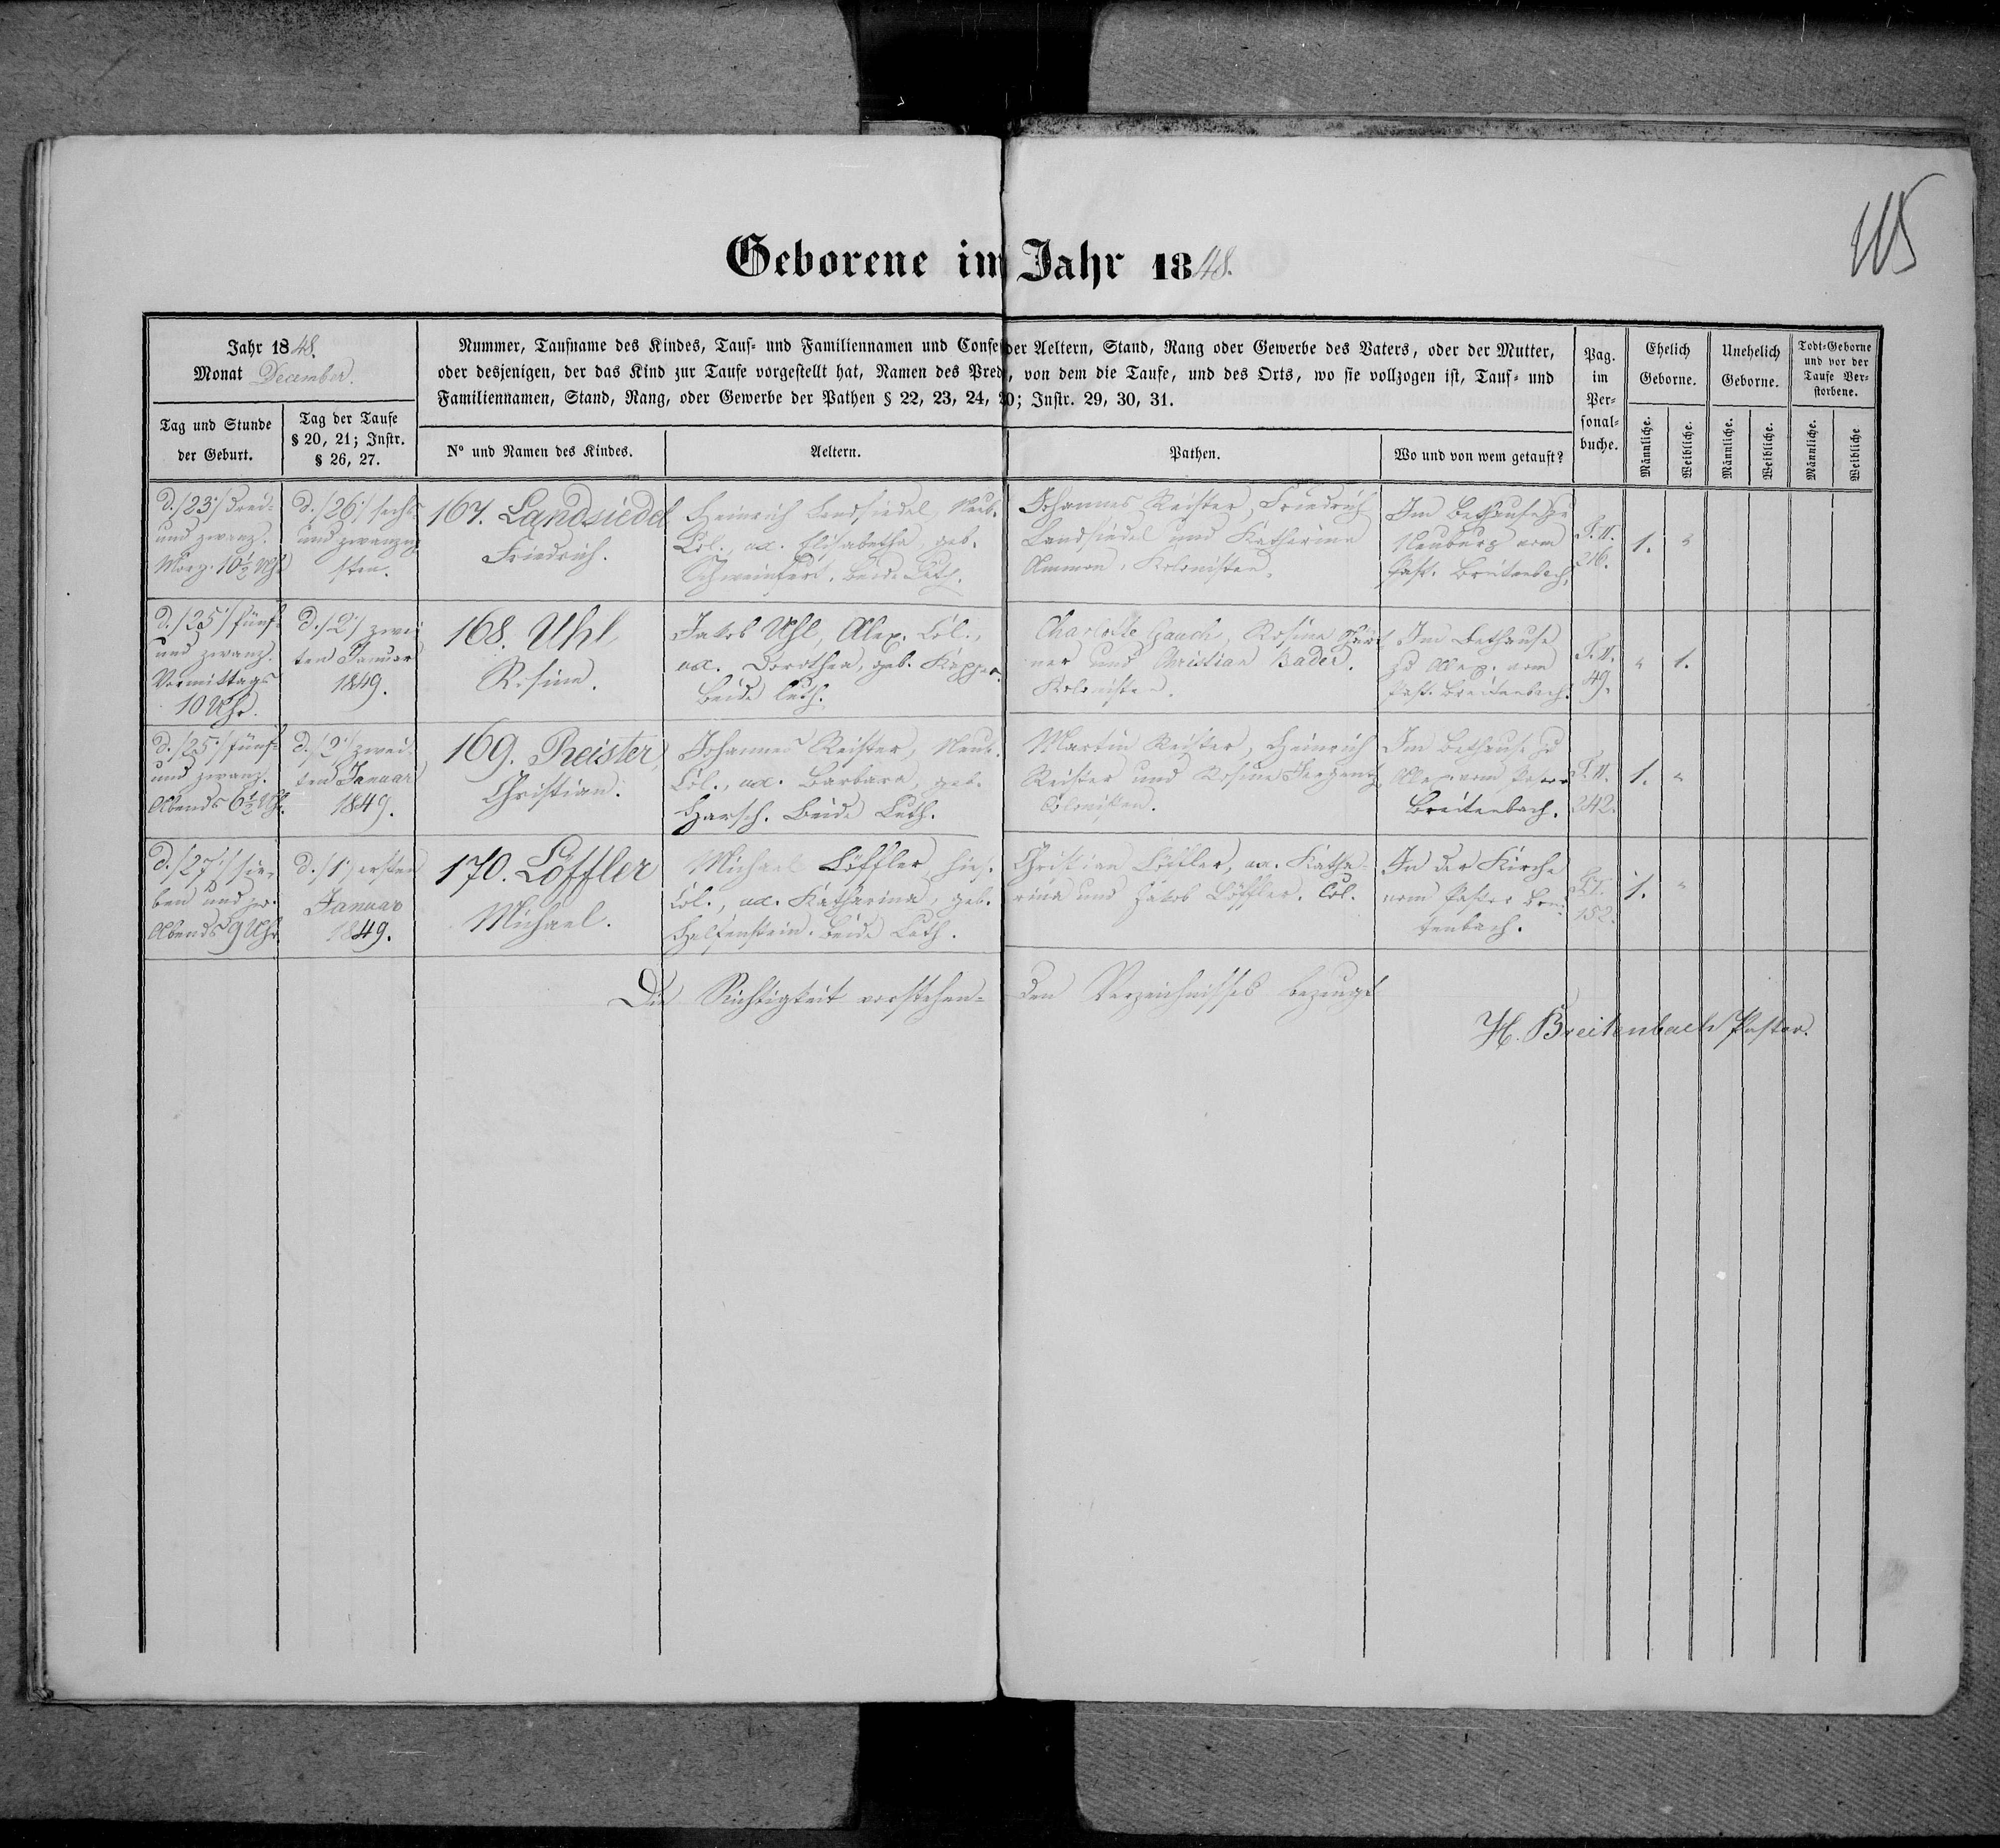 115
Geborene im Jahr 1848.
Jahr 1848.
Monat December.
Nummer, Taufname des Kindes, Tauf- und Familiennamen und Confe der Aeltern, Stand, Rang oder Gewerbe des Vaters, oder der Mutter,
oder desjenigen, der das Kind zur Taufe vorgestellt hat, Namen des Pred , von dem die Taufe, und des Orts, wo sie vollzogen ist, Tauf- und
Familiennamen, Stand, Rang, oder Gewerbe der Pathen § 22, 23, 24, 20; Instr. 29, 30, 31.
Pag.
im
Per-
sonal-
buche.
Ehelich
Geborne.
Unehelich
Geborne.
Todt-Geborne
und vor der
Taufe Ver-
storbene.
Tag und Stunde
der Geburt.
Tag der Taufe
§ 20, 21; Instr.
§ 26, 27.
N° und Namen des Kindes.
Aeltern.
Pathen.
Wo und von wem getauft?
Männliche.
Weibliche.
Männliche.
Weibliche.
Männliche.
Weibliche
d. /23/ drei-
und zwanz.
Morg. 10½ Uhr
d. /26/ sechs
und zwanzig
sten.
167. Landsiedel
Friedrich.
Heinrich Landsiedel, Neub.
Col., ux. Elisabetha, geb.
Schweinfurt. Beide Luth.
Johannes Reister, Friedrich
Landsiedel und Katharina
Ammon, Kolonisten.
Im Bethause zu
Neuburg vom
Past. Breitenbach.
T. II.
216.
1. "
d. /25/ fünf-
und zwanz.
Vormittags
10 Uhr.
d. /2/ zwei-
ten Januar
1849.
168. Uhl,
Rosina.
Jakob Uhl, Alex. Col.,
ux. Dorothea, geb. Kapper.
Beide luth.
Charlotte Gauch, Rosina Gärt
ner und Christian Bader.
Kolonisten.
Im Bethause
zu Alex. vom
Past. Breitenbach.
T. II.
49.
" 1.
d. /25/ fünf-
und zwanz.
Abends 6½ Uhr.
d. /2/ zwei-
ten Januar
1849.
169. Reister,
Christian.
Johannes Reister, Neub.
Col., ux. Barbara, geb.
Harsch. Beide Luth.
Martin Reister, Heinrich
Reister und Rosina
Colonisten.
Im Bethause zu
Alex. vom Pastor
Breitenbach.
T. II.
242.
1. "
d. /27/ sie-
ben und zw.
Abends 9 Uhr
d. /1/ ersten
Januar
1849.
170. Löffler
Michael.
Michael Löffler, hies.
Col., ux. Katharina, geb.
Helfenstein. Beide Luth.
Christian Löffler, ux. Katha-
rina und Jakob Löffler. Col.
In der Kirche
vom Pastor Brei-
tenbach.
T. I.
152.
1. "
Die Richtigkeit vorstehen-den Verzeichnisses bezeugt
H. Breitenbach Pastor.